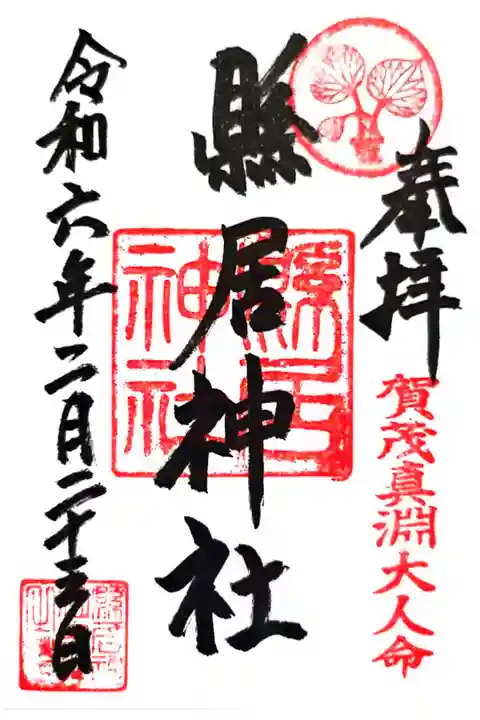 奉拝
賀茂真淵大人命
縣居神社
縣居神社
令和六年二月二十三日